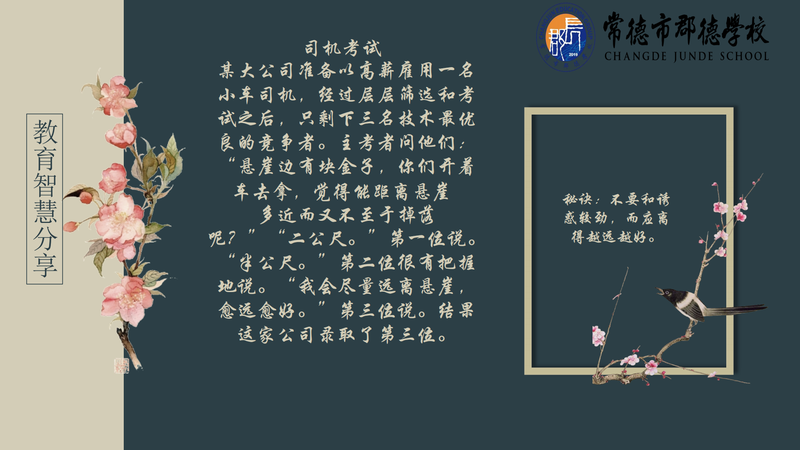 教育智慧分享
司机考试
某大公司准备以高薪雇用一名
小车司机，经过层层筛选和考
试之后，只剩下三名技术最优
良的竞争者。主考者问他们：
“悬崖边有块金子，你们开着
车去拿，觉得能距离悬崖
多近而又不至于掉落
呢？”“二公尺。”第一位说。
“半公尺。”第二位很有把握
地说。“我会尽量远离悬崖，
愈远愈好。”第三位说。结果
这家公司录取了第三位。
常德市郡德學校
CHANGDE JUNDE SCHOOL
秘诀：不要和诱
惑较劲，而应离
得越远越好。